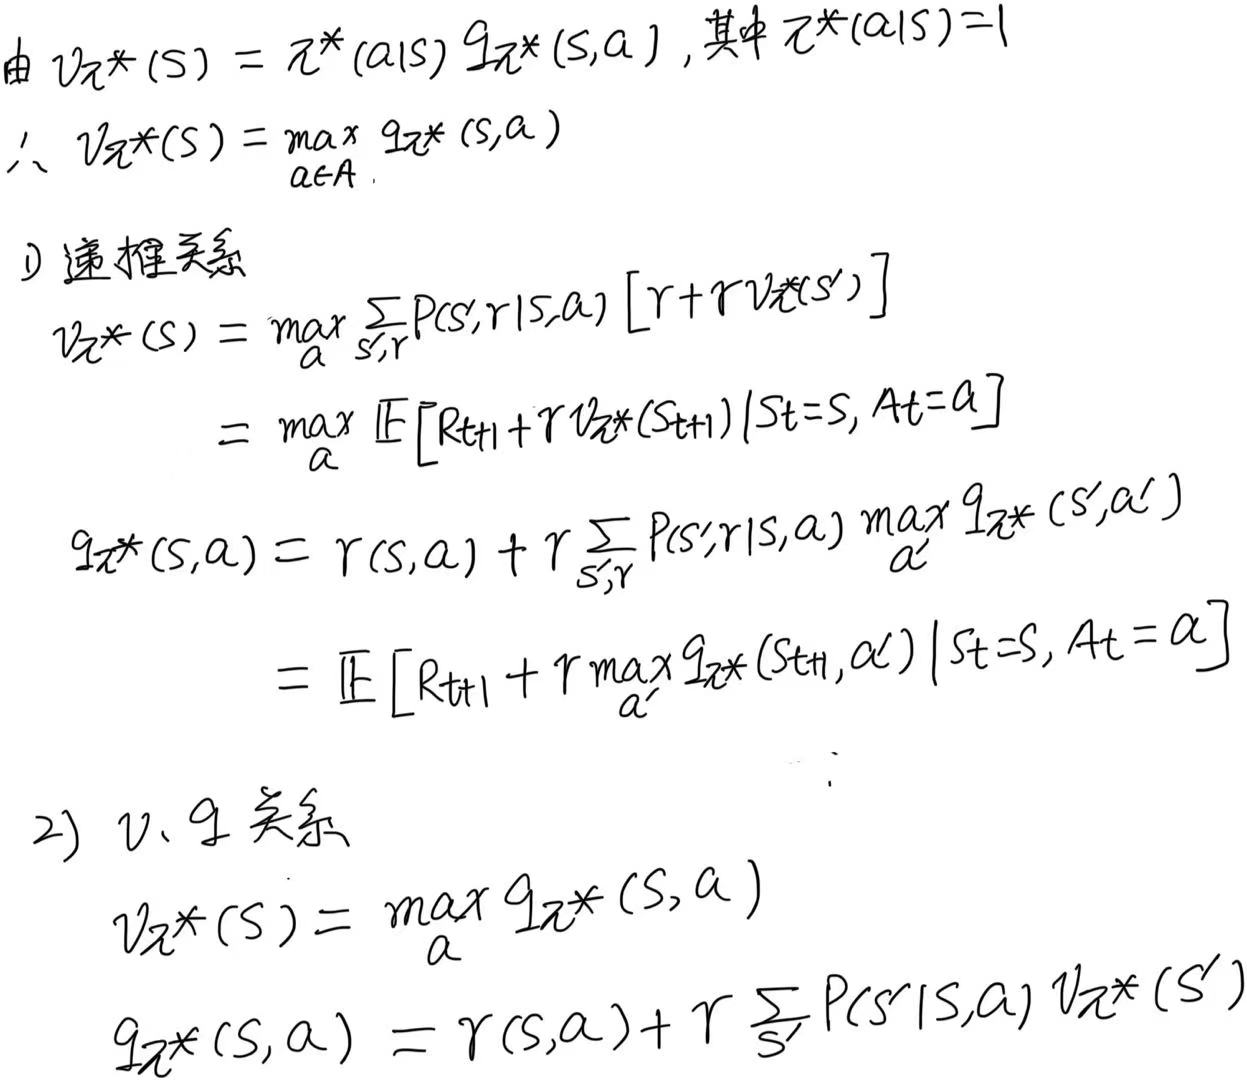 由 νπ*(s) = π*(a|s) qπ*(s,a), 其中 π*(a|s)=1
∴ νπ*(s) = max_{a∈A} qπ*(s,a)
1) 递推关系
νπ*(s) = max_a Σ_{s',r} P(s',r|s,a) [r+γνπ*(s')]
= max_a 𝔼[R_{t+1}+γνπ*(S_{t+1})|S_t=s, A_t=a]
qπ*(s,a) = r(s,a) + γ Σ_{s',r} P(s',r|s,a) max_{a'} qπ*(s',a')
= 𝔼[R_{t+1} + γ max_{a'} qπ*(S_{t+1},a')|S_t=s, A_t=a]
2) ν、q 关系
νπ*(s) = max_a qπ*(s,a)
qπ*(s,a) = r(s,a) + γ Σ_{s'} P(s'|s,a) νπ*(s')